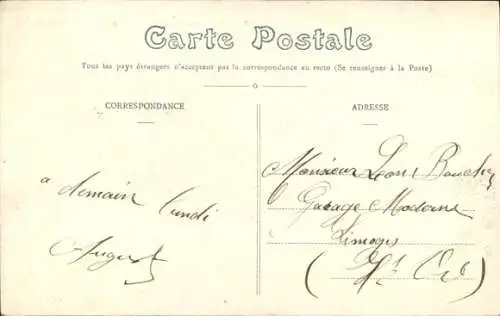 Carte Postale
Tous les pays étrangers n'acceptent pas la correspondance au recto (Se renseigner à la Poste)
CORRESPONDANCE
ADRESSE
a demain lundi
Monsieur Léon
Garage Moderne
Limoges